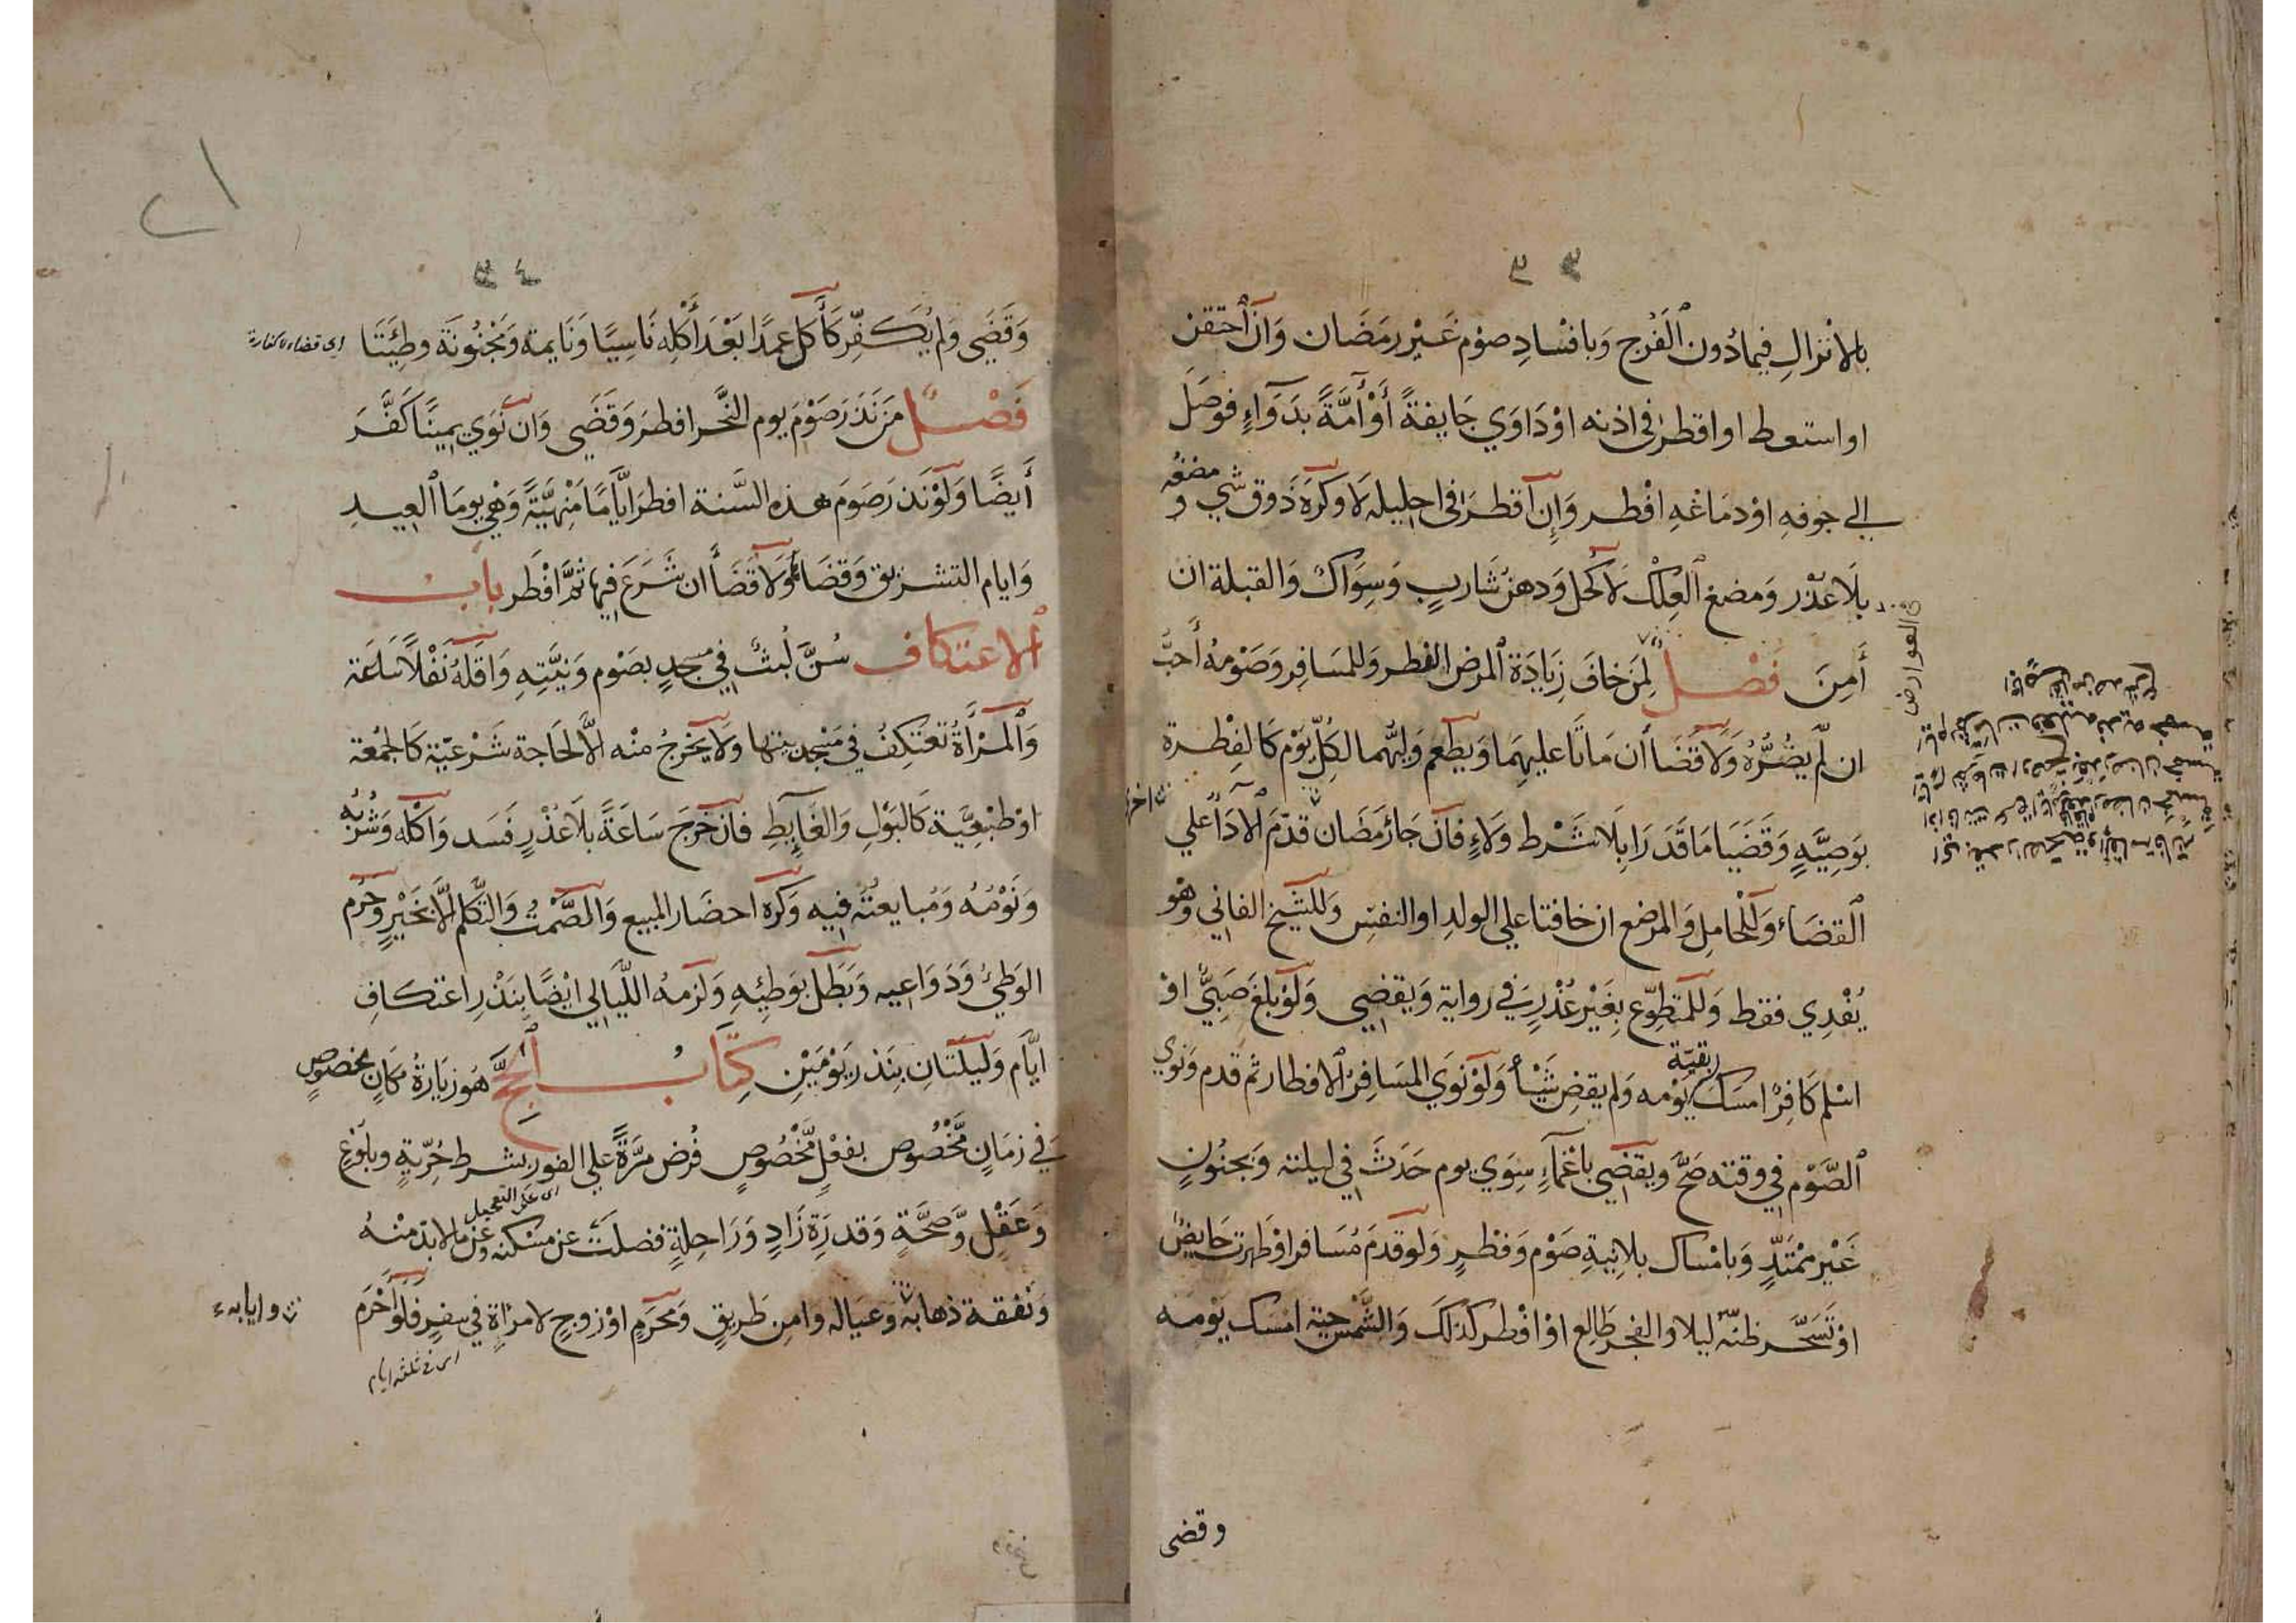 ٣٣
بالانزالِ فيمادُون ٱلفَرْج وَبافْسادِ صوْم غَيْر رمَضَان وَانْ ٱحتقن
او استعط او اقطر فى اذنه اوْ دَاوَي جَايفةً أوْ أمَّةً بدَوَاءٍ فوصَلَ
الي جوفهِ اوْ دمَاغهِ افْطر وَإن اقطَرَ فى احليله لَا وكرَه ذَوق شي ومضغه
بلَا عُذر وَمضغ ٱلعِلْك لَا كُحل وَدهنُ شَاربٍ وَسِوَاكٌ وَالقبلة ان
أَمِنَ فَصْل لِمَن خافَ زِيَادَة ٱلمرض الفطر وَللمسَافِر وَصَوْمهُ أحَبُّ
ان لَّم يضُرُّهُ وَلَا قَضَا أن مَاتَا عليهِمَا وَيطعم وَليُّهما لكُلِّ يَوْم كَالفِطْرة
بوَصِيَّةٍ وَقَضَيَا مَا قَدَرَا بِلَا شَرْط ولَاءٍ فان جَاءَ رَمَضَان قدَّمَ ٱلادَاءَ علي
ٱلقضَاء وَللْحَامِل وَالمرضع ان خافتا علي الولدِ او النفسِ وَللشَّيخ الفاني وَهْو
يُفْدِي فقط وَللمتطوِّع بِغَيْر عُذرٍ في رواية وَيقضِي وَلَوْ بلغ صَبِيٌّ اوْ
اسْلم كَافِرٌ امسَك بقيّة يَوْمه وَلم يقضِ شَيْأ وَلَوْ نوَي المسَافِرُ ٱلافطار ثم قدم وَنوي
ٱلصَّوْم في وقته صَحَّ ويقضِي باغْمَاءٍ سِوَي يوم حَدَثَ في ليلته وَبجنُونٍ
غَيْر مُمْتَدٍّ وَبامْساك بلا نِيةِ صَوْم وَفطْرٍ وَلو قَدمَ مُسَافر اوْ طَهرت حَايضٌ
اوْ تَسَحَّر ظنّهُ ليلا والفجر طَالِع اوْ افْطر كذلكَ وَالشَّمْس حَيّة امْسَك يَوْمه
وقضى
العوارض
٣٤
وَقَضَي وَلم يُكَفِّر كَأكل عمدًا بَعْدَ أكْلِه نَاسِيًا وَنَايمة وَمَجْنُونَة وطِئَتَا
اى قضاء بلا كفارة
فَصْل مَن نَذَرَ صَوْمَ يوم النَّحر افطرَ وَقَضَي وَان نَوَي يمِينًا كَفَّرَ
أيضًا وَلَوْ نَذرَ صَومَ هذه السَّنة افطرَ ايَّامًا مَنْهيَّةً وَهْي يومَا ٱلعِيدِ
وَايام التشريق وَقضَاهَا وَلَا قَضَاَ ان شَرَعَ فِيها ثمَّ افْطَر بابُ
ٱلاعتكاف سُنَّ لُبثٌ في مسجدٍ بصَوْم وَنيَّتِهِ وَاقلّهُ نَفْلًا سَاعَة
وَٱلمَرْأَةُ تعْتَكِفُ في مَسْجد بيتها ولَا يَخرجُ منْه الَّا لحَاجة شَرْعيّة كَالجمُعة
اوْ طبْعِيَّة كَالبَوْلِ وَالغَايطِ فان خَرَجَ سَاعَةً بلَا عُذْرٍ فَسَد وَاكلُه وَشُرْبُه
وَنَوْمُهُ وَمُبايعتُهُ فِيه وَكره احضَار المبيع وَالصَّمْتُ وَالتَّكلّم الَّا بخَيْرٍ وَحُرم
الوَطْئُ وَدَوَاعِيه وَبَطَل بوَطئِهِ وَلزمهُ اللَّيَالي ايْضًا بنَذْرِ اعتكافِ
ايَّام وَليلَتَانِ بنَذر يَوْمَيْنِ كِتَابُ ٱلحَجِّ هُو زيَارَةُ مَكَانٍ مخصوصٍ
في زمَانٍ مَّخصُوص بفعْلٍ مَّخْصُوصٍ فُرض مَرَّةً علي الفور بشرط حُرِّيةٍ وبلوغِ
اى على التعجيل
وَعَقْلٍ وَّصحَّةٍ وَقدرَةِ زَادٍ وَرَاحِلةٍ فضلَتْ عن مسْكنه وَعن ما لابدّ منْهُ
وَنفقة ذهابهِ وَعيَاله وامن طَريقٍ وَمحرَمٍ اوْ زوجٍ لامرْاةٍ في سفرٍ فلوْ احْرَم
وايابه
اى فى ثلثة ايام